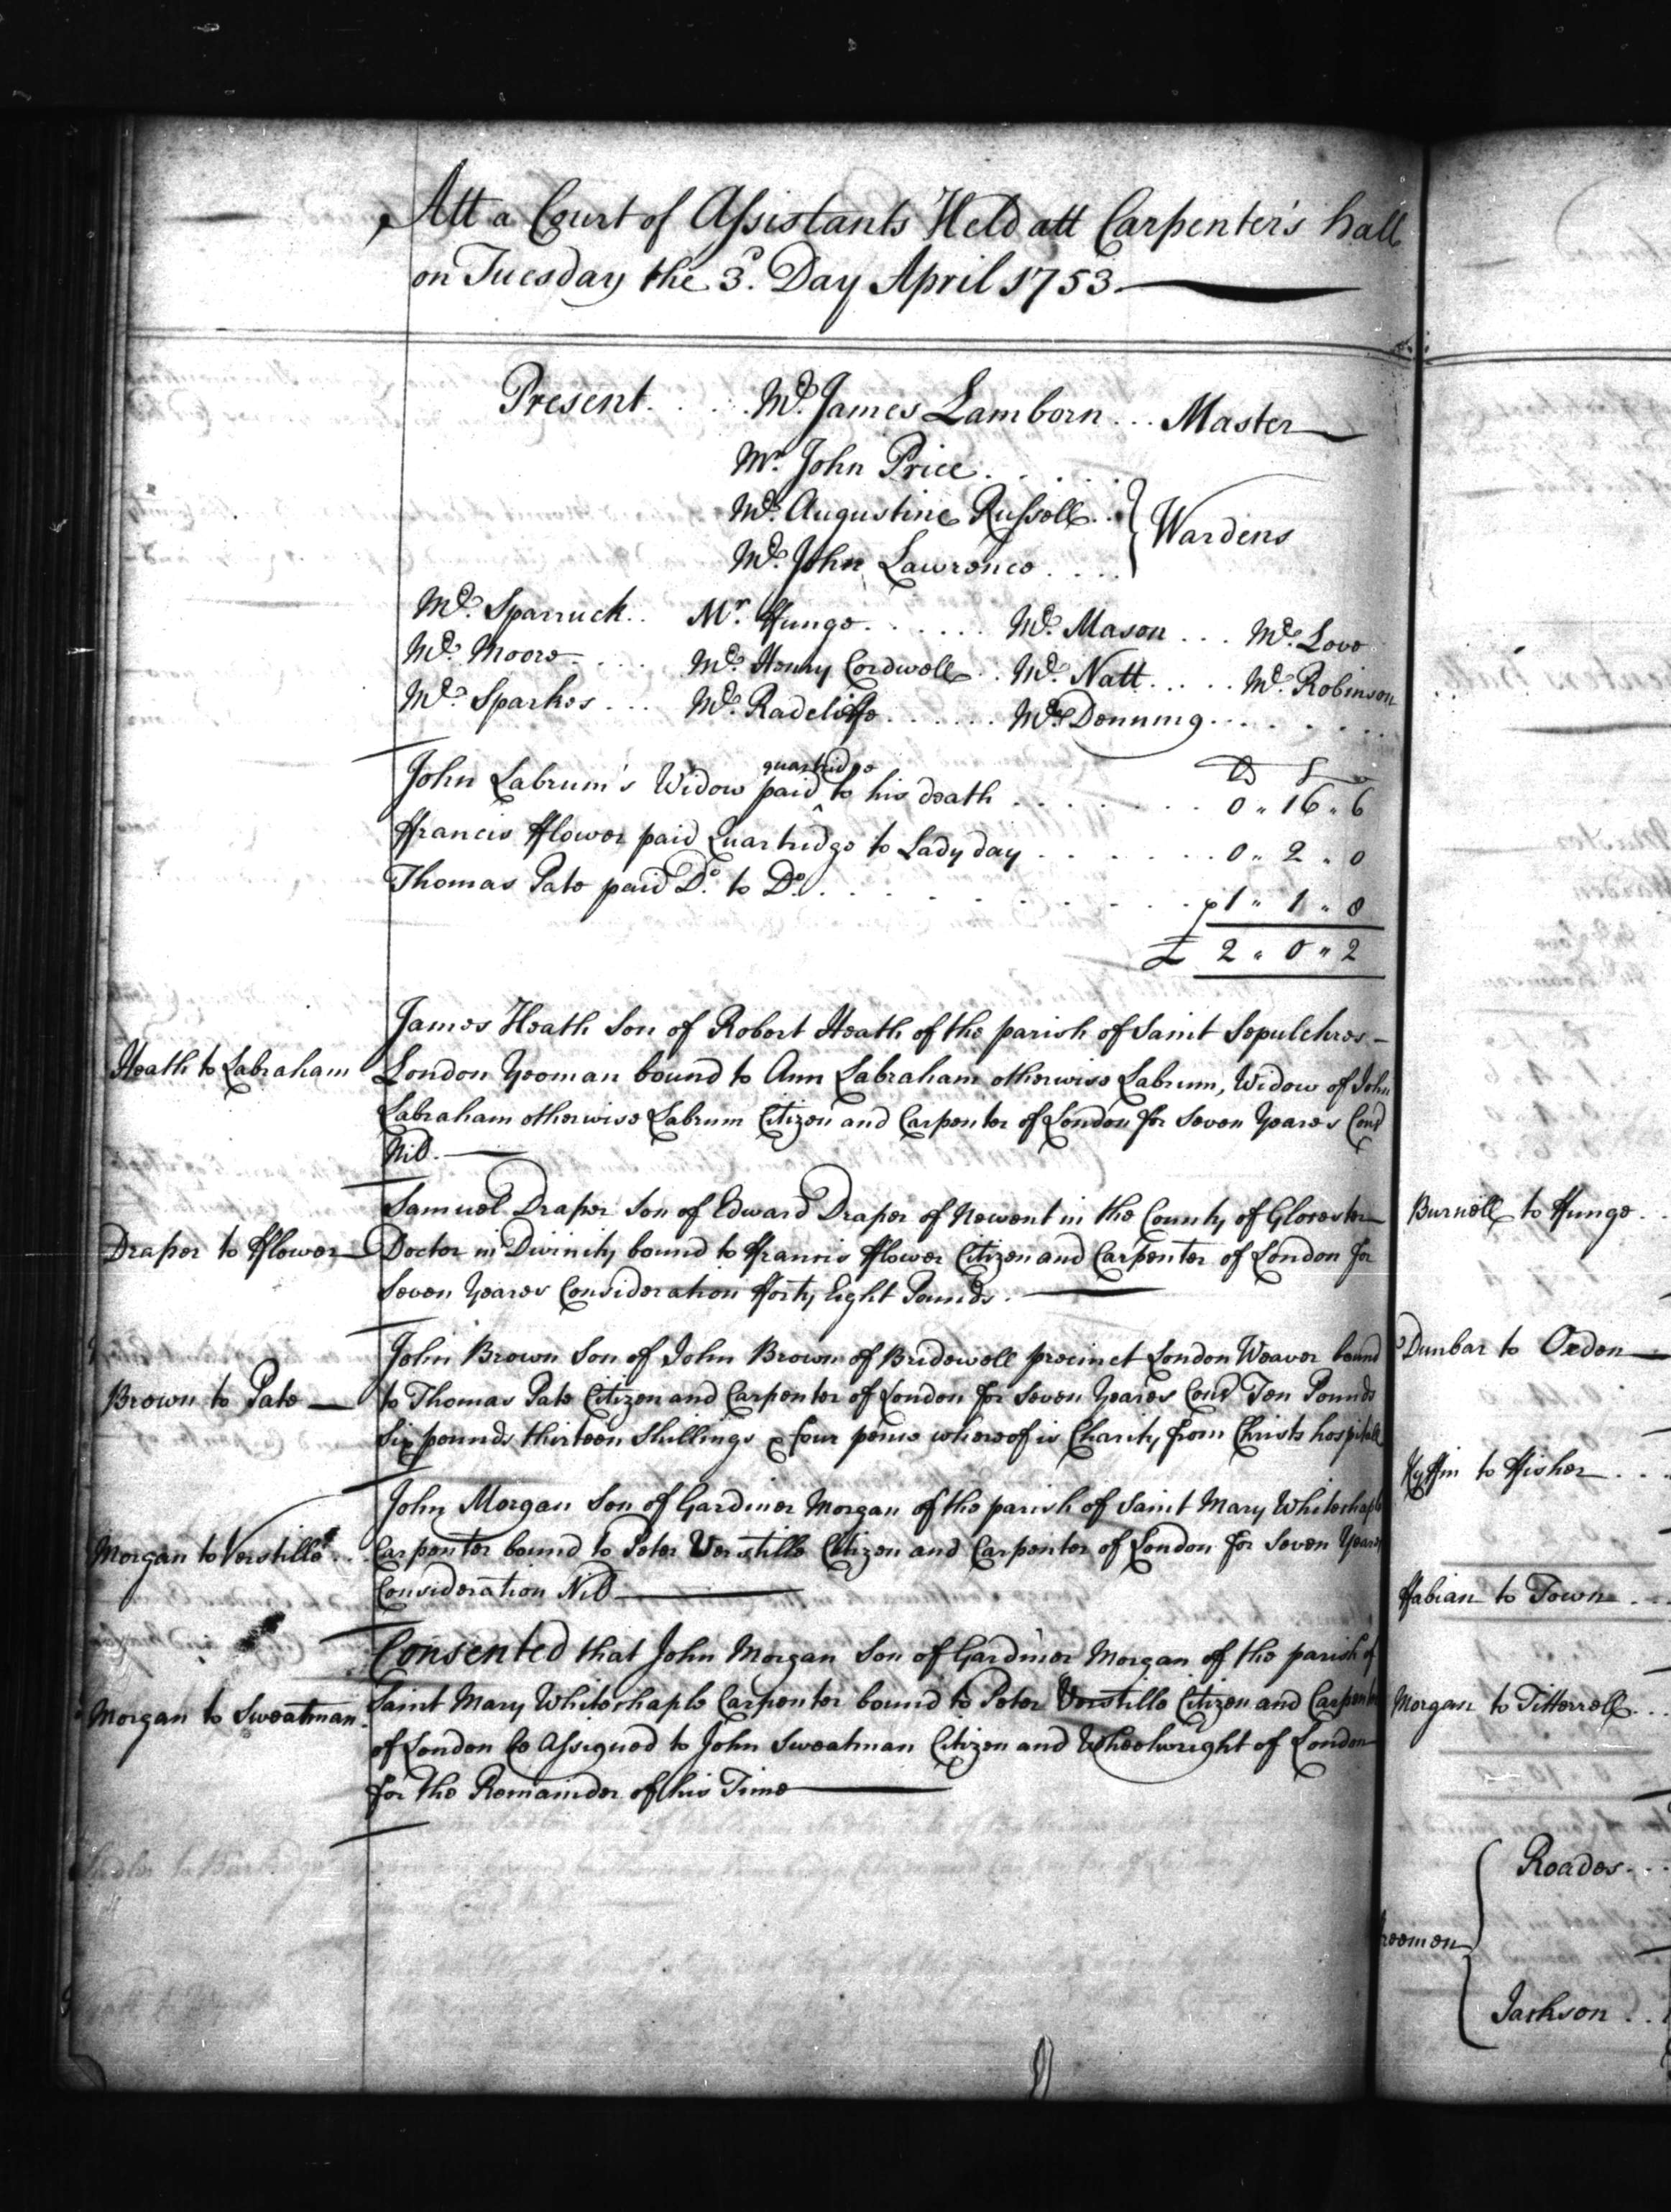 Att a Court of Assistants Held att Carpenter's hall
on Tuesday the 3d. Day April 1753.
Present. . . . . Mr. James Lamborn . . . Master
Mr. John Price . . . . .
Mr. Augustine Russell . .
Wardens
Mr. John Lawrence . . . .
Mr. Sparruck . . Mr. ffunge . . . . . . Mr. Mason . . . Mr. Love
Mr. Moore . . . . Mr. Henry Cordwell . . Mr. Natt . . . . . Mr. Robinson
Mr. Sparkes . . . Mr. Radcliffe . . . . . . Mr. Denning . . . . . . .
quartridge
John Labrum's Widow paid ^ to his death . . . . . . . . 0 " 16 " 6
ffrancis fflower paid Quartridge to Lady day . . . . . . . 0 " 2 " 0
Thomas Pate paid Do. to Do. . . . . . . . . . . 1 " 1 " 8
£ 2 " 0 " 2
James Heath Son of Robert Heath of the parish of Saint Sepulchres -
Heath to Labraham
London Yeoman bound to Ann Labraham otherwise Labrum, Widow of John
Labraham otherwise Labrum Citizen and Carpenter of London for Seven Yeares Cond
Nil.
Samuel Draper Son of Edward Draper of Newent in the County of Glocester
Draper to fflower
Doctor in Divinity bound to ffrancis fflower Citizen and Carpenter of London for
Seven Yeares Consideration fforty Eight Pounds.
John Brown Son of John Brown of Bridewell precinct London Weaver bound
Brown to Pate
to Thomas Pate Citizen and Carpenter of London for Seven Yeares Cond Ten Pounds
Six pounds thirteen Shillings & four pence whereof is Charity from Christs hospitall
John Morgan Son of Gardiner Morgan of the parish of Saint Mary Whitechaple
Morgan to Verstille . . .
Carpenter bound to Peter Verstille Citizen and Carpenter of London for Seven Yeares
Consideration Nil
Consented that John Morgan Son of Gardiner Morgan of the parish of
Morgan to Sweatman
Saint Mary Whitechaple Carpenter bound to Peter Verstille Citizen and Carpenter
of London be Assigned to John Sweatman Citizen and Wheelwright of London
for the Remainder of his Time
Burnell to ffunge . .
Dunbar to Oxden
Kyffin to ffisher . . .
ffabian to Town . . .
Morgan to Titterrell . . .
Roades . . .
freemen
Jackson . . .